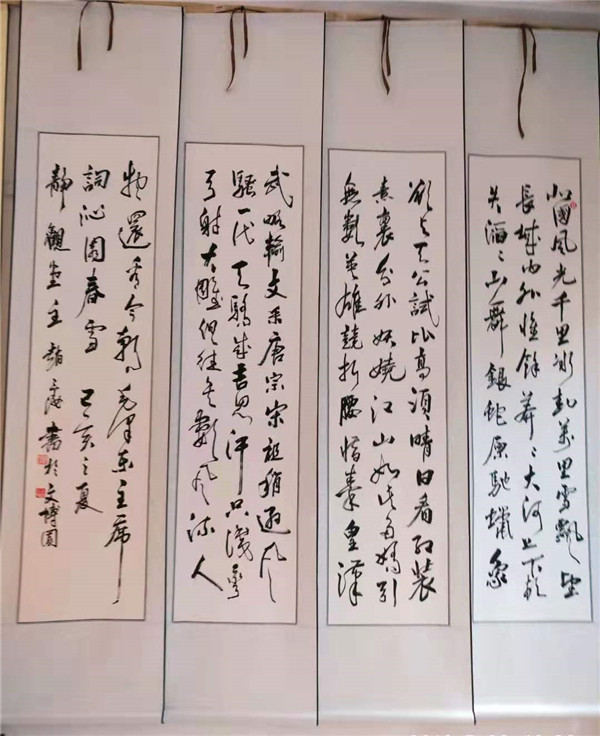 北國風光千里冰封萬里雪飄望
長城内外惟餘莽〻大河上下頓
失滔〻山舞銀蛇原馳蠟象
欲与天公試比高須晴日看红装
素裹分外妖嬈江山如此多嬌引
無數英雄競折腰惜秦皇漢
武略輸文采唐宗宋祖稍遜風
騷一代天驕成吉思汗只識彎
弓射大雕俱往矣數風流人
物還看今朝 毛澤东主席
詞沁園春雪 己亥之夏
靜觀堂主 書於文博園